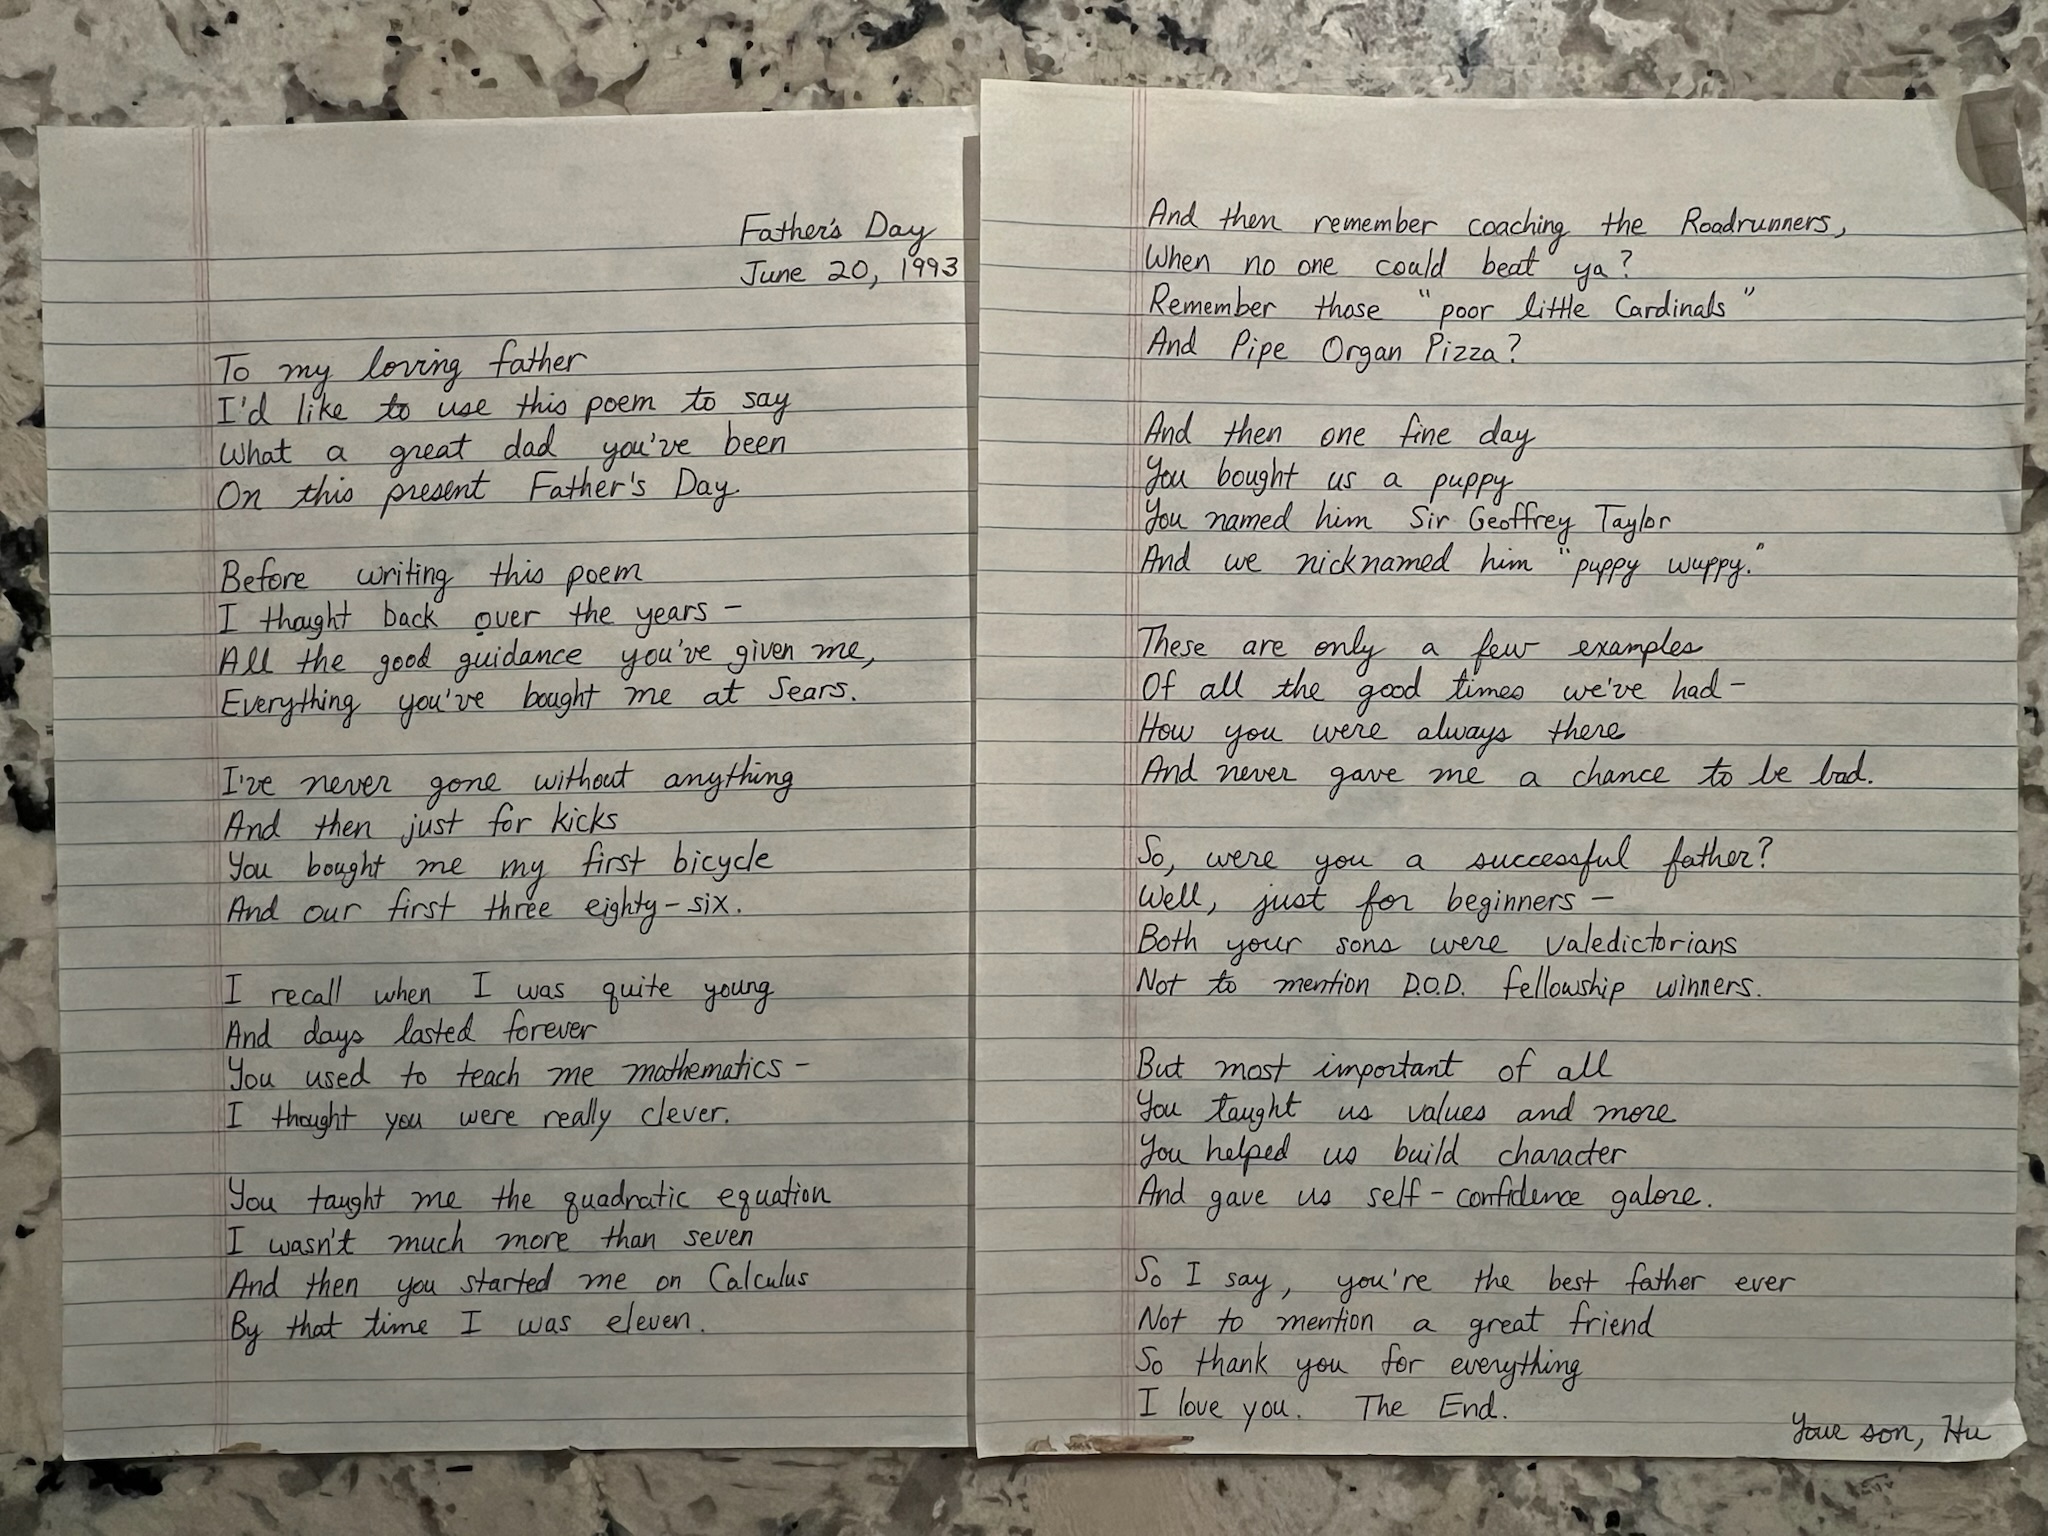 Father's Day
June 20, 1993
To my loving father
I'd like to use this poem to say
What a great dad you've been
On this present Father's Day.
Before writing this poem
I thought back over the years –
All the good guidance you've given me,
Everything you've bought me at Sears.
I've never gone without anything
And then just for kicks
You bought me my first bicycle
And our first three eighty-six.
I recall when I was quite young
And days lasted forever
You used to teach me mathematics –
I thought you were really clever.
You taught me the quadratic equation
I wasn't much more than seven
And then you started me on Calculus
By that time I was eleven.
And then remember coaching the Roadrunners,
When no one could beat ya?
Remember those "poor little Cardinals"
And Pipe Organ Pizza?
And then one fine day
You bought us a puppy
You named him Sir Geoffrey Taylor
And we nicknamed him "puppy wuppy."
These are only a few examples
Of all the good times we've had –
How you were always there
And never gave me a chance to be bad.
So, were you a successful father?
Well, just for beginners –
Both your sons were valedictorians
Not to mention D.O.D. fellowship winners.
But most important of all
You taught us values and more
You helped us build character
And gave us self-confidence galore.
So I say, you're the best father ever
Not to mention a great friend
So thank you for everything
I love you. The End.
Your son, Hu